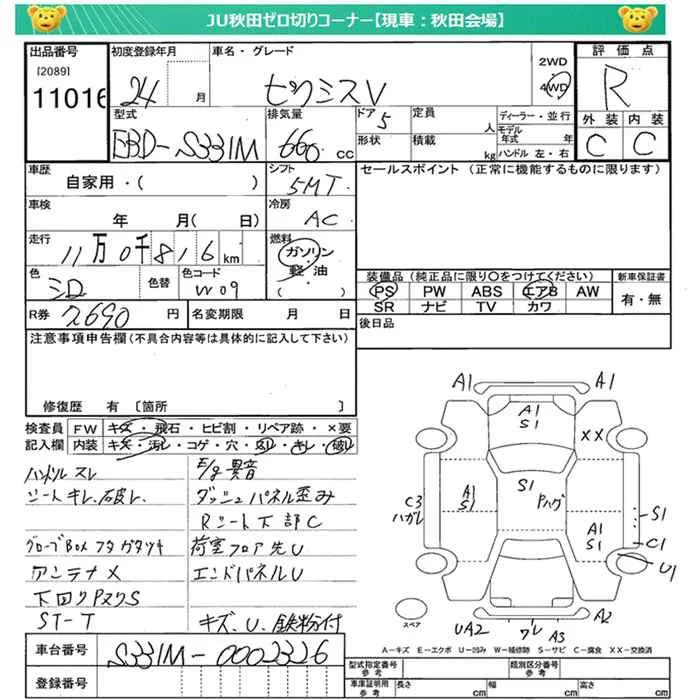 JU秋田ゼロ切りコーナー【現車：秋田会場】
出品番号 初度登録年月 車名・グレード 2WD 4WD 評価点
[2089]
11016 24 月 ピクシスV R
型式 排気量 ドア 5 定員 人 ディーラー・並行 外装 内装
EBD-S331M 660 cc 形状 積載 kg モデル年式 年 ハンドル 左・右 C C
車歴 シフト セールスポイント (正常に機能するものに限ります)
自家用・( ) 5MT
車検 冷房
年 月( 日) AC
走行 燃料
11万0千816 km ガソリン
軽・油
( )
色 色替 色コード 装備品(純正品に限り○をつけてください) 新車保証書
シロ W09 PS PW ABS エアB AW 有・無
SR ナビ TV カワ
R券 7690 円 名変期限 月 日 後日品
注意事項申告欄(不具合内容等は具体的に記入して下さい)
修復歴 有 〔箇所 〕
検査員 FW キズ・飛石・ヒビ割・リペア跡・×要
記入欄 内装 キズ・汚レ・コゲ・穴・スレ・キレ・破レ
ハンドル スレ E/g異音
シートキレ、破レ、 ダッシュパネル歪み
Rシート下部C
グローブBOXフタガタツキ 荷室フロア先U
アンテナX エンドパネルU
下回りPヌリS
ST-T キズ、U、鉄粉付
A1 A1
A1
S1
XX
S1
Pハゲ
A1
S1
C3
ハガレ
A1
S1
S1
C1
U1
スペア
UA2 ワレ A3 A2
A-キズ E-エクボ U-凹み W-補修跡 S-サビ C-腐食 XX-交換済
車台番号 S331M-0002326
登録番号
型式指定番号 参考 類別区分番号 参考
車庫証明用 参考 長さ cm 幅 cm 高さ cm